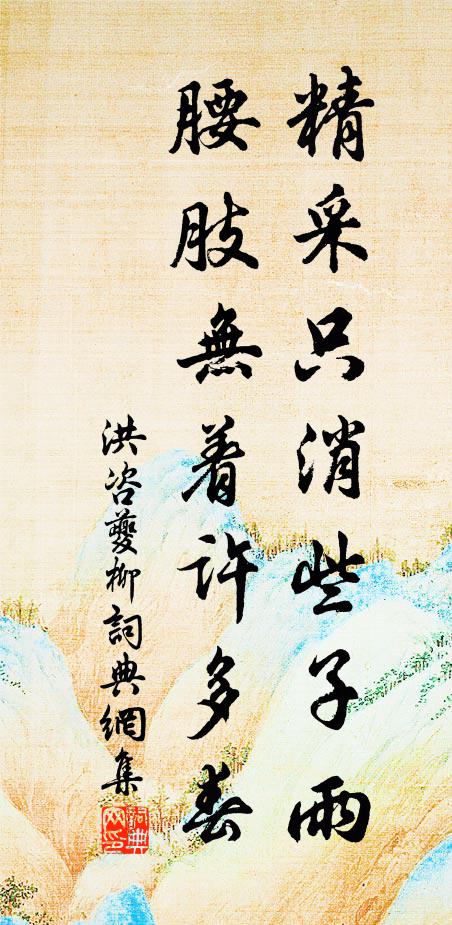 精采只消些子雨
腰肢無着許多春
洪咨夔柳詞典網集